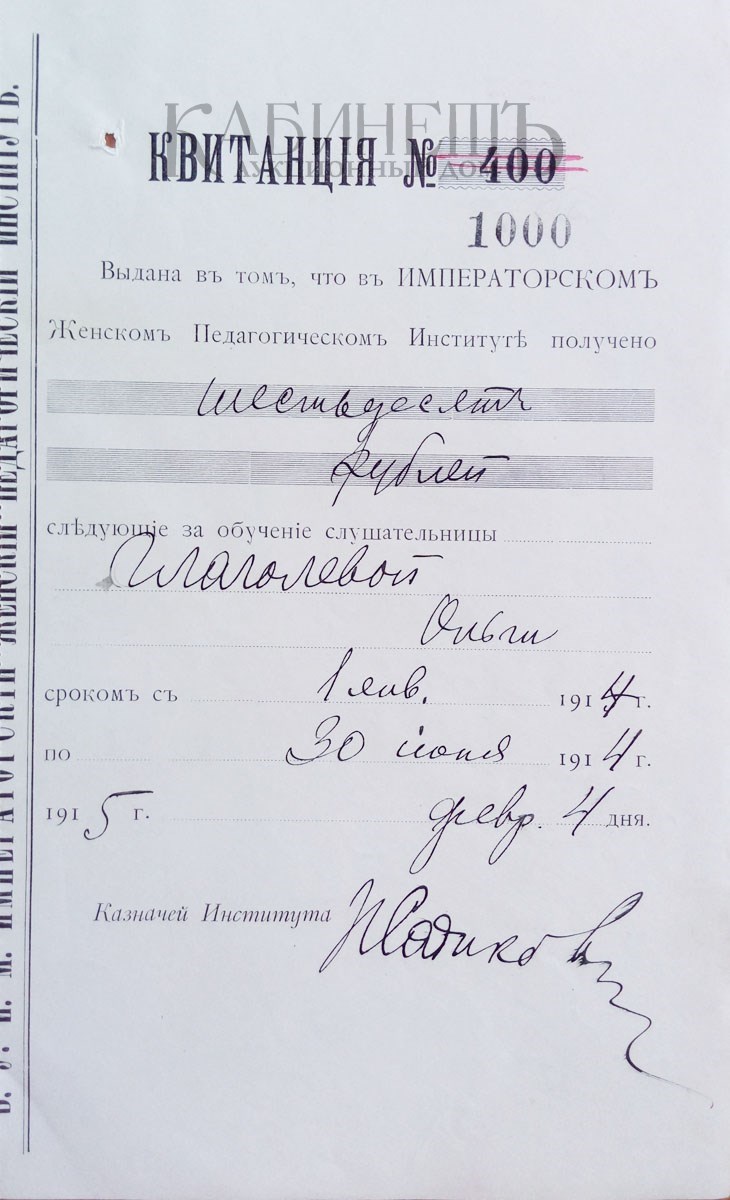 КАБИНЕТЪ
АУКЦИОННЫЙ ДОМ
КВИТАНЦІЯ № 400
1000
Выдана въ томъ, что въ ИМПЕРАТОРСКОМЪ
Женскомъ Педагогическомъ Институтѣ получено
шестьдесятъ
рублей
слѣдующіе за обученіе слушательницы
Глаголевой
Ольги
срокомъ съ 1 янв. 1914 г.
по 30 іюня 1914 г.
1915 г. февр. 4 дня.
Казначей Института
В. У. И. М. ИМПЕРАТОРСКІЙ ЖЕНСКІЙ ПЕДАГОГИЧЕСКІЙ ИНСТИТУТЪ.